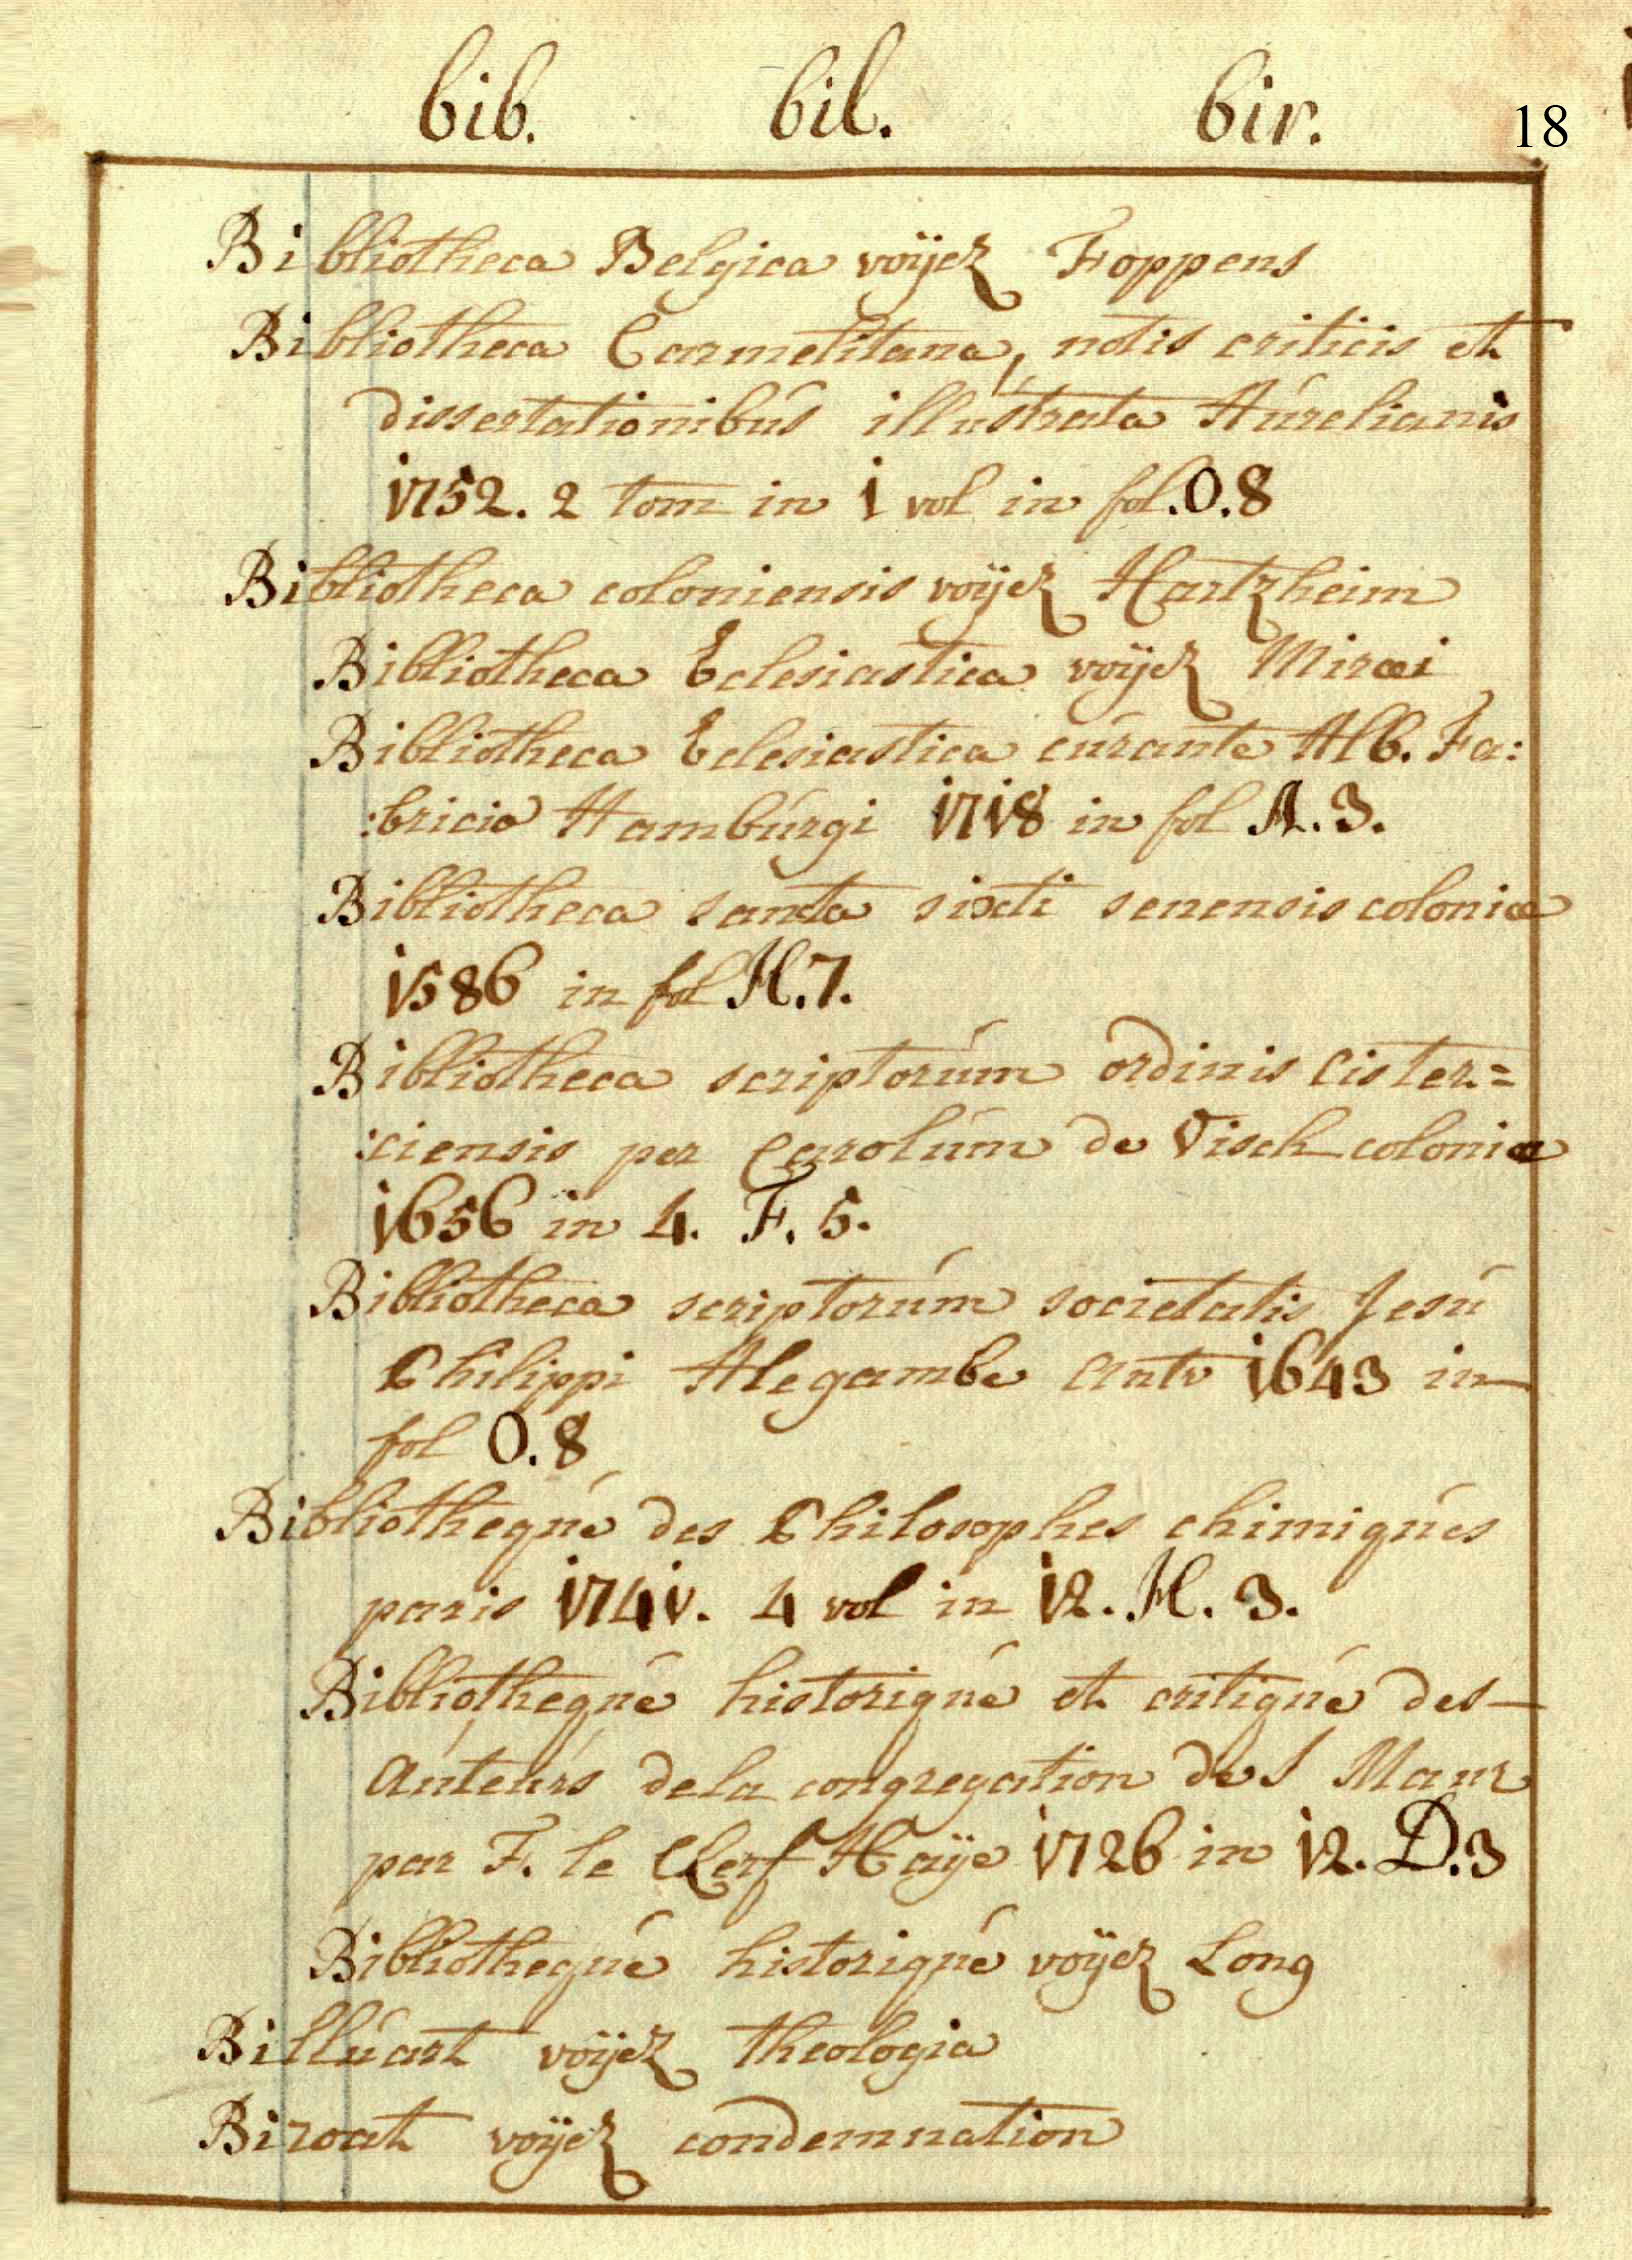 bib. bil. bir. 18
Bibliotheca Belgica voÿez Foppens
Bibliotheca Carmelitana, notis criticis et
dissertationibús illustrata Aúrelianis
1752. 2 tom in 1 vol in fol. O. 8
Bibliotheca coloniensis voÿez Hartzheim
Bibliotheca Eclesiastica voÿez Miræi
Bibliotheca Eclesiastica cúrante Alb. Fa:
:bricio Hambúrgi 1718 in fol A. 3.
Bibliotheca sancta sixti senensis coloniæ
1586 in fol H. 7.
Bibliotheca scriptorúm ordinis Cister=
:ciensis per Carolúm de Visch coloniæ
1656 in 4. F. 5.
Bibliotheca scriptorúm societatis Jesú
Philippi Alegambe Antv 1643 in
fol O. 8
Bibliothequé des Philosophes chimiqués
paris 1741. 4 vol in 12. H. 3.
Bibliothequé historiqué et critiqué des
Aúteúrs dela congregation de S Maur
par F. le Clerf Haÿe 1726 in 12. D. 3
Bibliothequé historiqué voÿez Long
Billúart voÿez theologia
Biroat voÿez condemnation